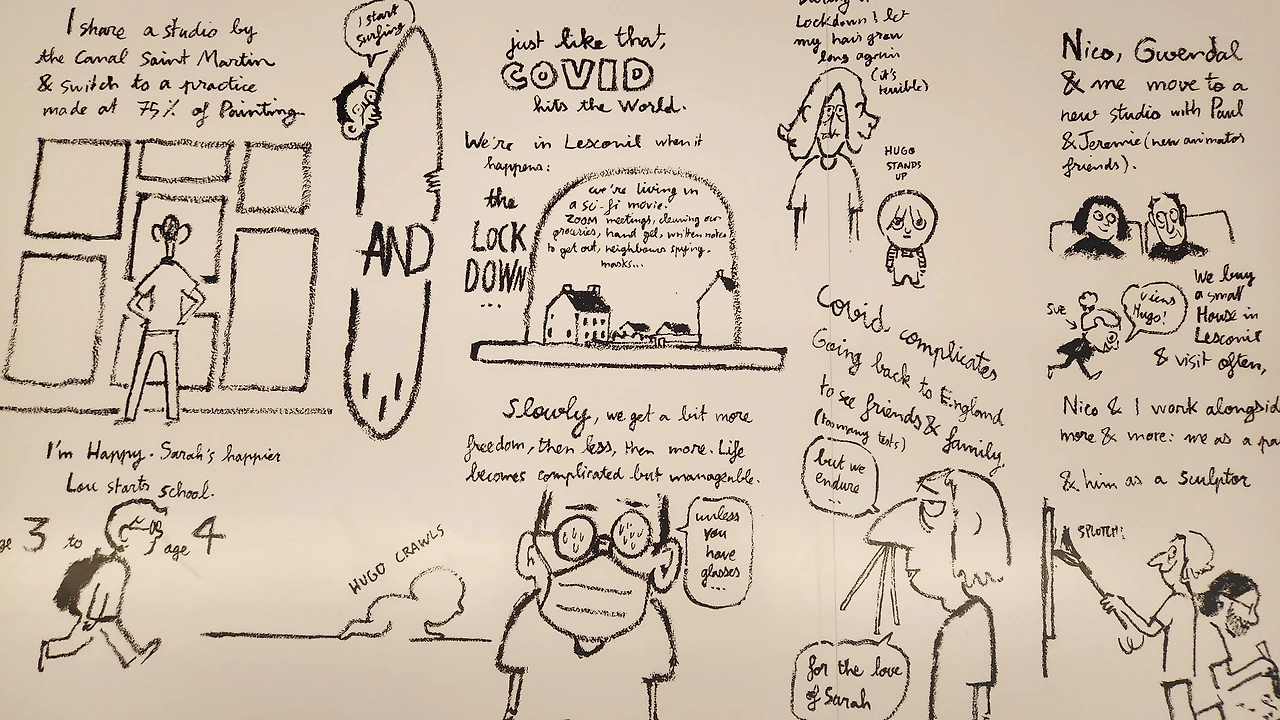 I share a studio by
the Canal Saint Martin
& switch to a practice
made at 75% of Painting.
I'm Happy. Sarah's happier
Lou starts school.
age 3 to age 4
HUGO CRAWLS
I start
surfing
AND
just like that,
COVID
hits the World.
We're in Lesconil when it
happens:
the
LOCK
DOWN
...
we're living in
a sci-fi movie.
ZOOM meetings, cleaning our
groceries, hand gel, written notes
to get out, neighbours spying,
masks...
Slowly, we get a bit more
freedom, then less, then more. Life
becomes complicated but manageable.
unless
you
have
glasses
...
Lockdown I let
my hair grow
long again
(it's
terrible)
HUGO
STANDS
UP
Covid complicates
Going back to England
to see friends & family
(too many tests)
but we
endure
...
for the love
of Sarah
Nico, Gwendal
& me move to a
new studio with Paul
& Jeremie (new animators
friends).
We buy
a small
House in
Lesconil
& visit often,
SUE
Viens
Hugo!
Nico & I work alongsid
more & more: me as a pa
& him as a sculptor
SPLOTCH!